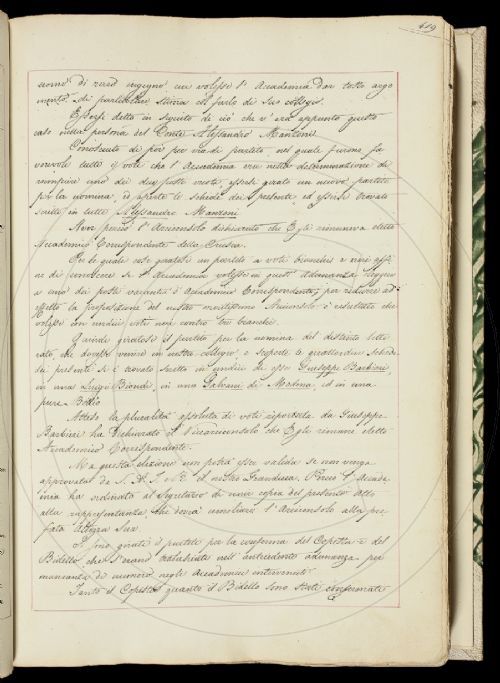 419
uomo di raro ingegno cui volesse l'Accademia dar tosto argo
mento di particolar stima col farlo di suo collegio.
Essersi detto in seguito di ciò che v'era appunto questo
caso nella persona del Conte Alessandro Manzoni
Conosciuto di poi per via di partito nel quale furono fa
vorevoli tutti i voti che l'Accademia era nella determinazione di
riempire uno dei due posti vuoti, essersi girato un nuovo partito
per la nomina, ed aperte le schede dei presenti, ed essersi trovato
scritto in tutte Alessandro Manzoni
Aver perciò l'Arciconsolo dichiarato che Egli rimaneva eletto
Accademico Corrispondente della Crusca.
Per le quali cose giratosi un partito a voti bianchi e neri affi
ne di conoscere se l'Accademia volesse in quest'adunanza eleggere
a uno dei posti vacanti d'Accademico Corrispondente, per ridurre ad
effetto la proposizione del nostro meritissimo Arciconsolo è resultato che
volesse con undici voti neri contro tre bianchi.
Quindi giratosi il partito per la nomina del distinto lette
rato, che dovesse venire in nostro collegio, e scoperte le quattordici schede
dei presenti si è trovato scritto in undici di esse Giuseppe Barbieri
in una Luigi Biondi, in una Galvani di Modena, ed in una
pure Botto
Atteso la pluralità assoluta di voti riportata da Giuseppe
Barbieri ha dichiarato il Vicearciconsolo che Egli rimane eletto
Accademico Corrispondente.
Ma questa elezione non potrà esser valida se non venga
approvata da S. A. I. e R. il nostro Granduca. Perciò l'Accade
mia ha ordinato al Segretario di unire copia del presente atto
alla rappresentanza che dovrà umiliare l'Arciconsolo alla pre
fata Altezza Sua
Si sono girati i partiti per la conferma del Copista e del
Bidello che s'erano tralasciati nell'antecedente adunanza per
mancanza di numero negli Accademici intervenuti
Tanto il Copista quanto il Bidello sono stati confermati